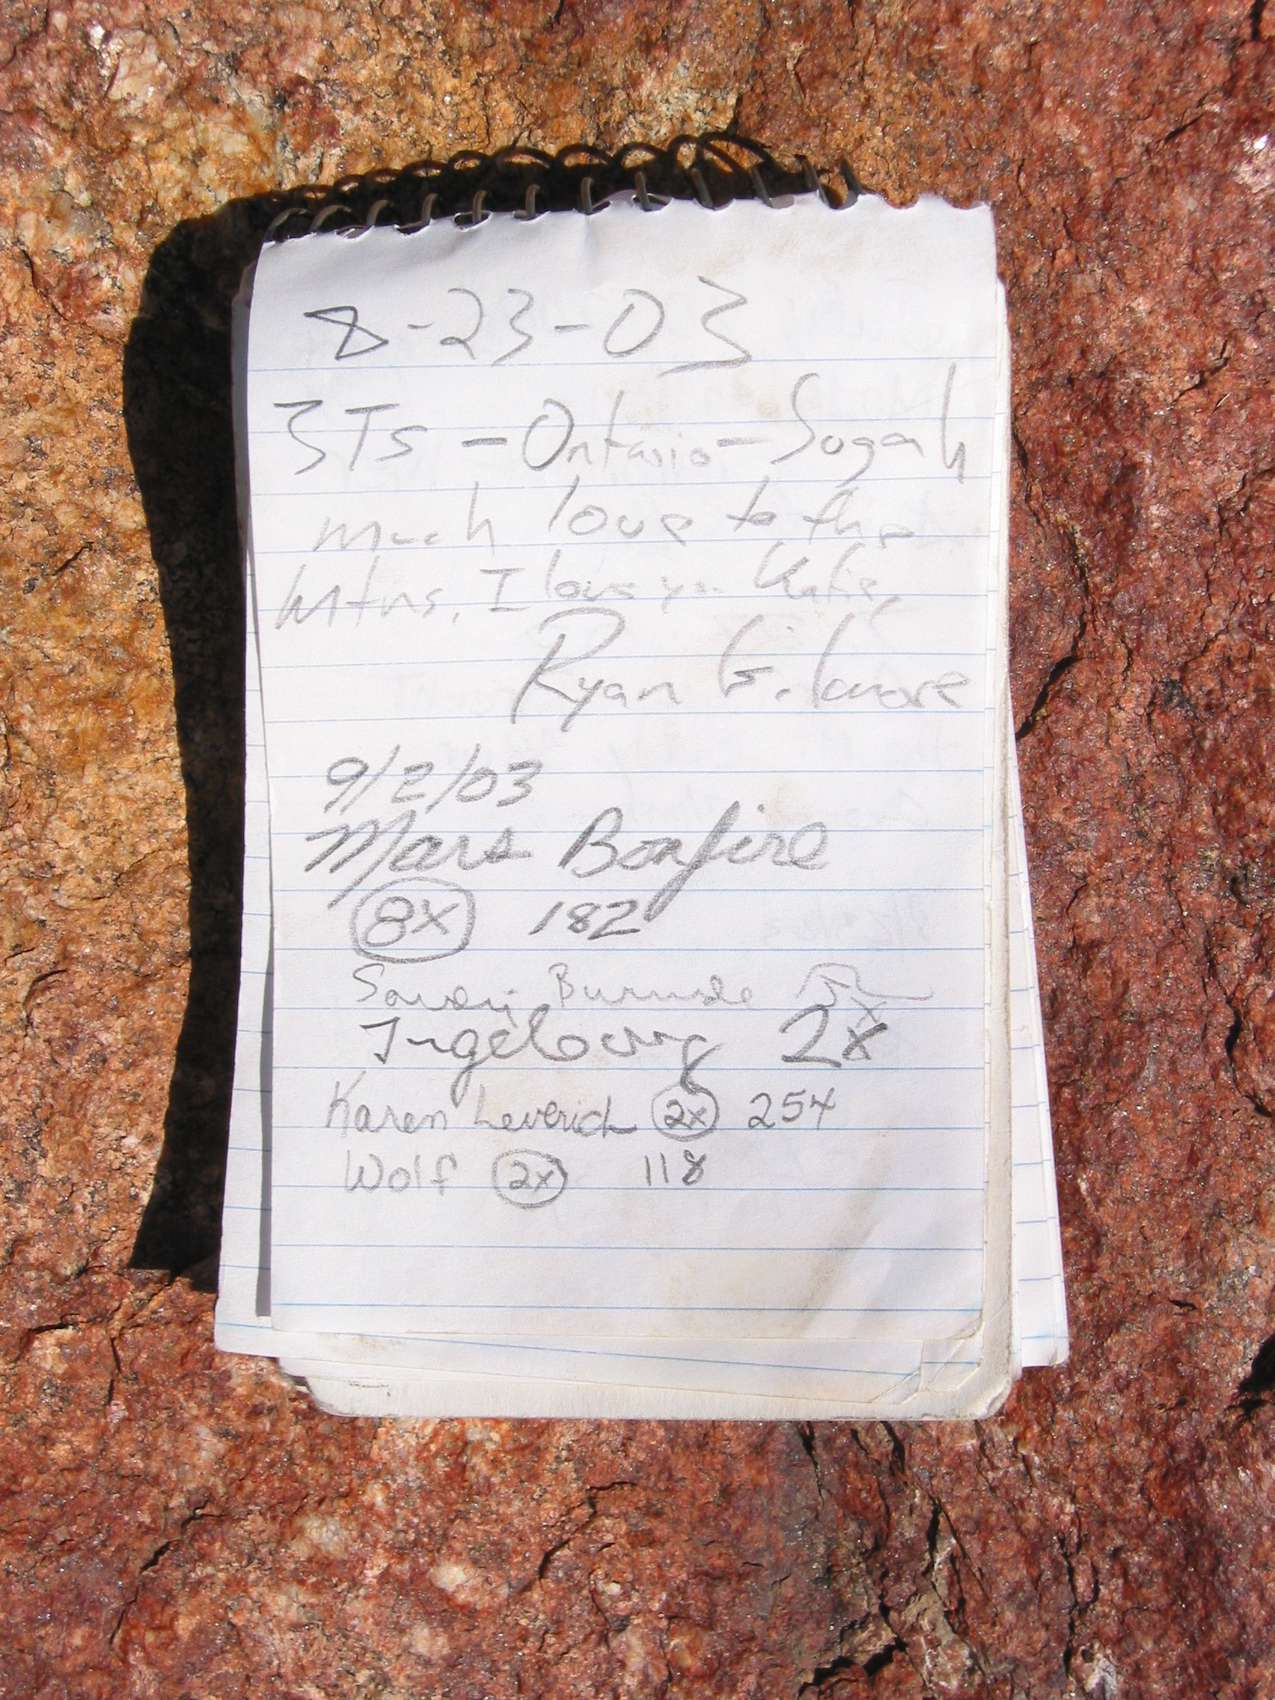 8-23-03
3Ts - Ontario - Sugarh
much love to the
Mtns. I love you Katie,
Ryan Gilmore
9/2/03
Mars Bonfire
8x 182
Ingeborg 2x
Karen Leverich 2x 254
Wolf 2x 118